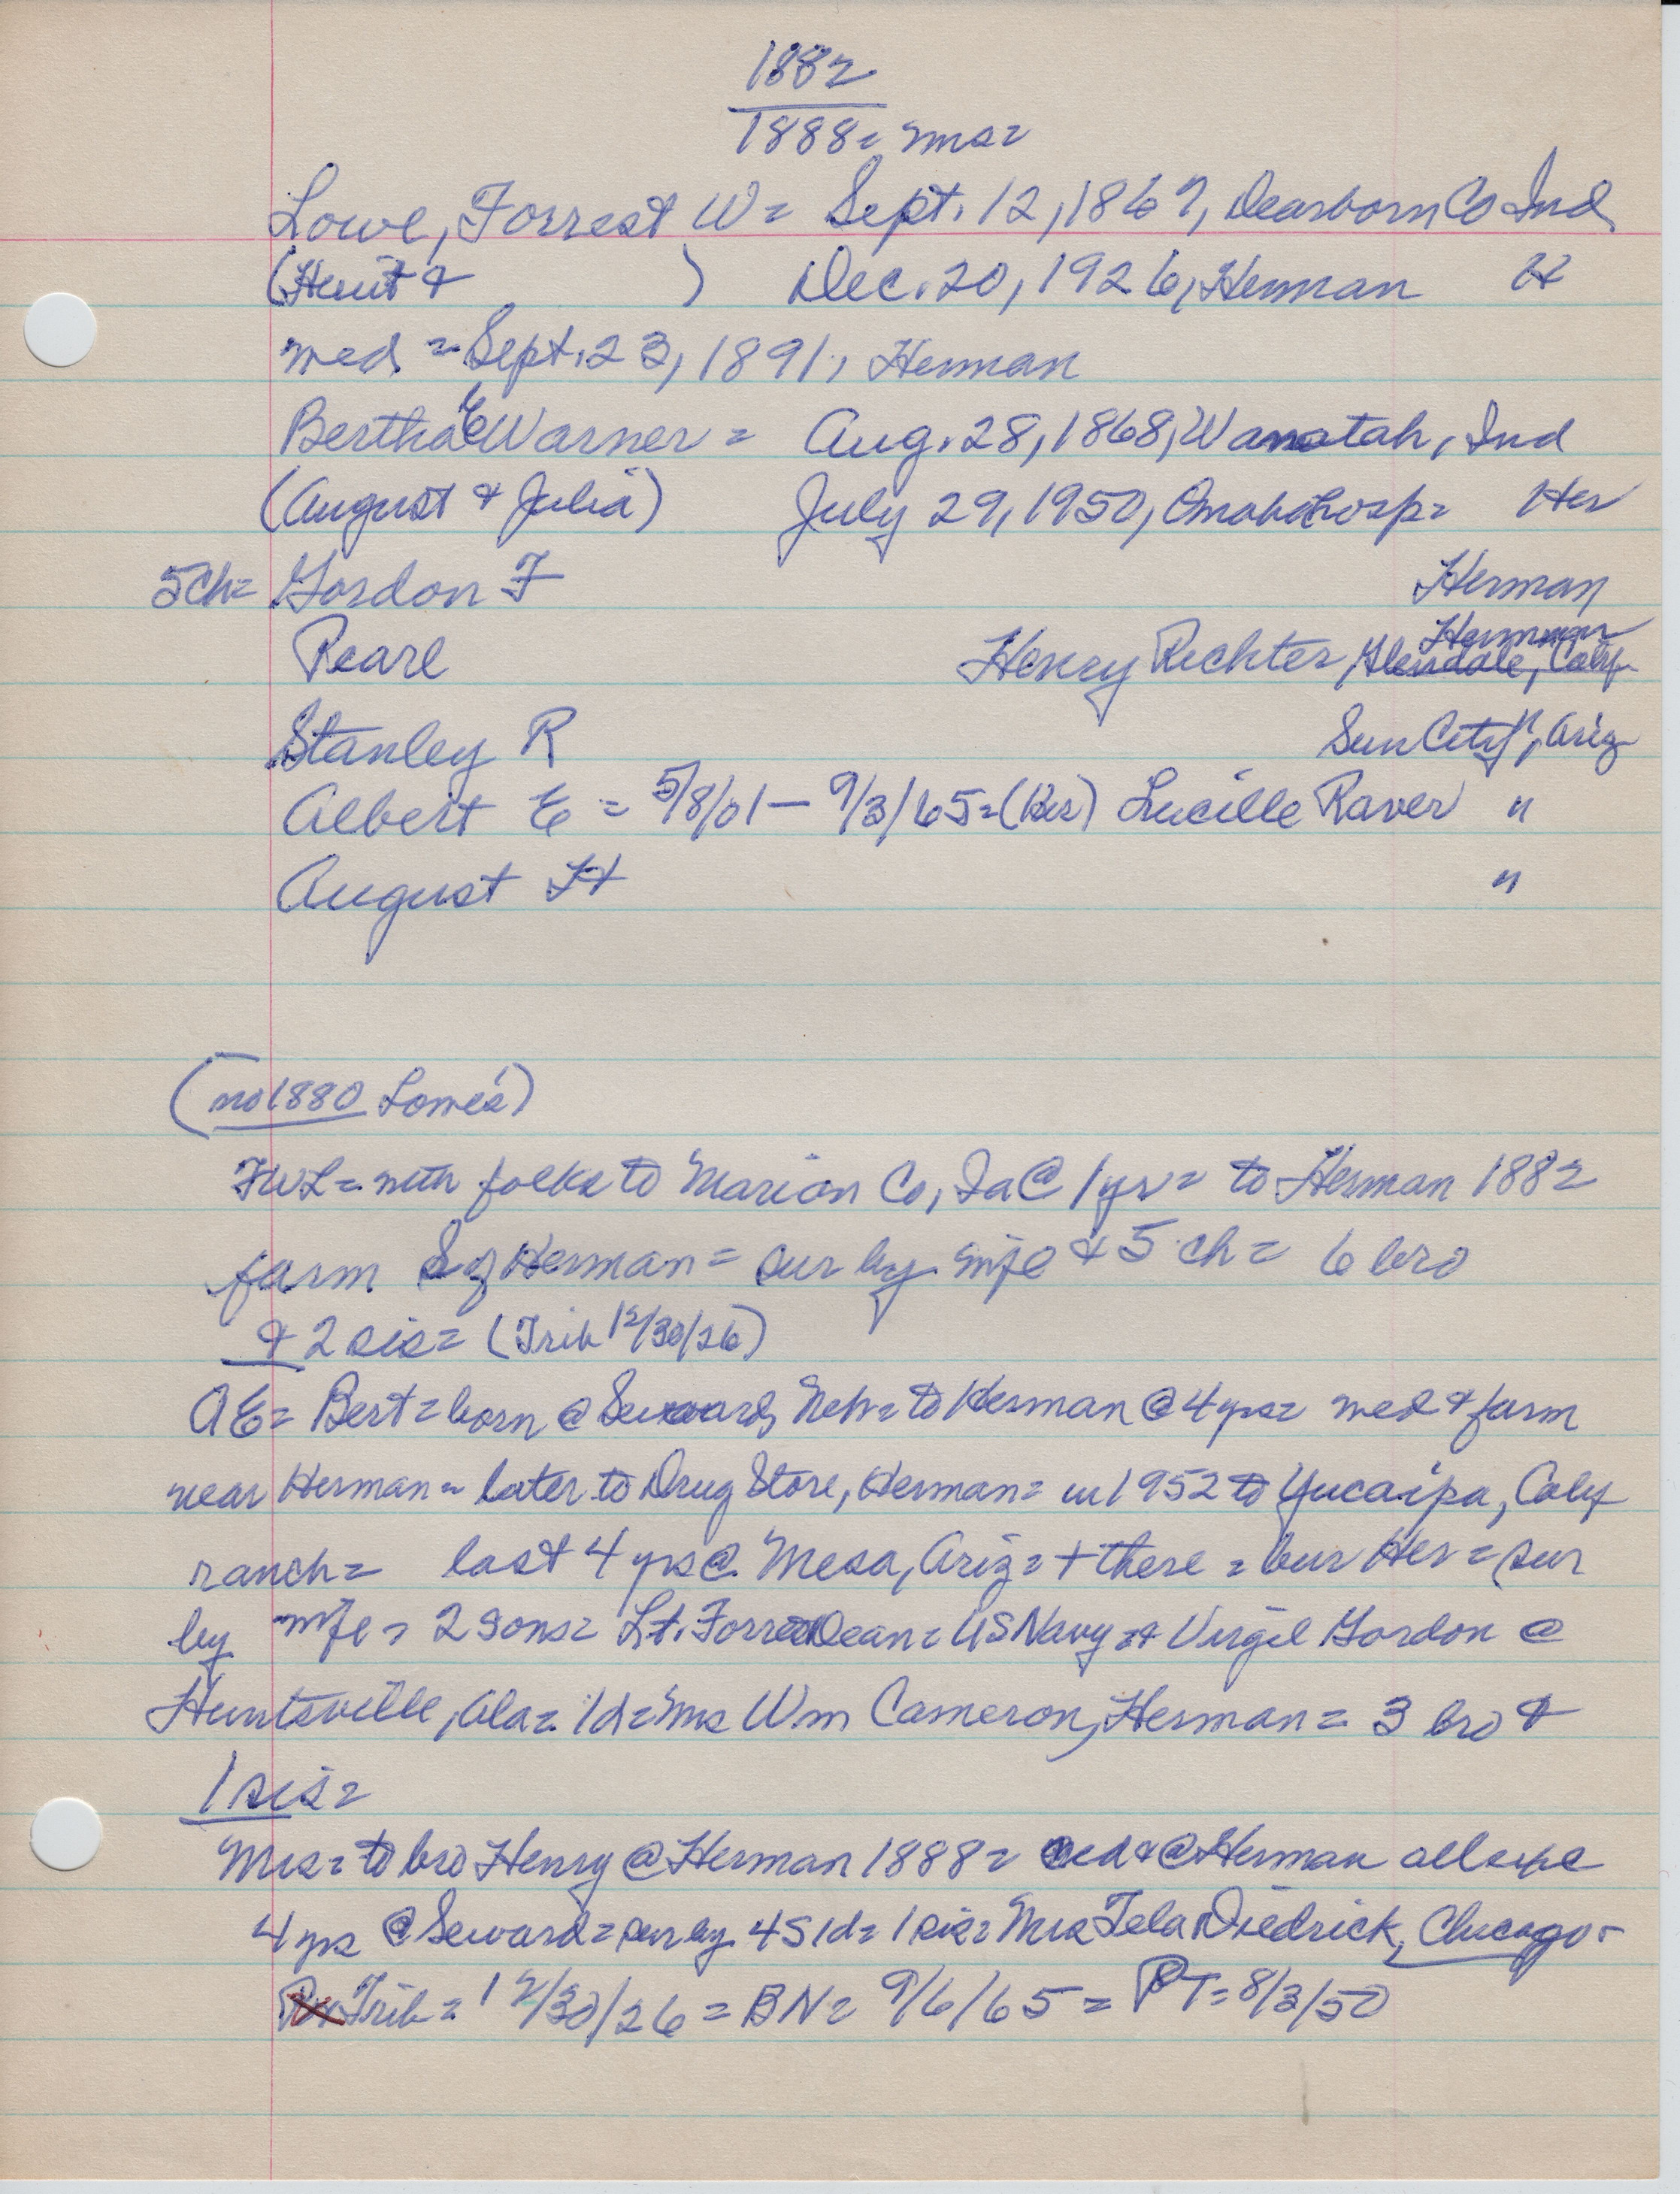 1882
1888 = Mrs =
Lowe, Forrest W = Sept. 12, 1867, Dearborn Co Ind
( & ) Dec. 20, 1926, Herman H
med = Sept. 23, 1891, Herman
Bertha E Warner = Aug. 28, 1868, Wanatah, Ind
(August & Julia) July 29, 1950, Omaha hosp = Her
5 ch = Gordon F Herman
Herman
Pearl Henry Richter, Glendale, Calif
Stanley R Sun City, Ariz
Albert E = 5/8/01 — 9/3/65 = (Her) Lucille Raver "
August H "
(no 1880 Lowe's)
FWL = with folks to Marion Co, Ia @ 1 yr = to Herman 1882
farm S of Herman = sur by wife & 5 ch = 6 bro
& 2 sis = (Trib 12/30/26)
AE = Bert = born @ Seward, Neb = to Herman @ 4 yrs = med & farm
near Herman = later to Drug Store, Herman = in 1952 to Yucaipa, Calif
ranch = last 4 yrs @ Mesa, Ariz = + there = bur Her = sur
by wife = 2 sons = Lt. Forrest Dean = US Navy = & Virgil Gordon @
Huntsville, Ala = 1 d = Mrs Wm Cameron, Herman = 3 bro &
1 sis =
Mrs = to bro Henry @ Herman 1888 = med & @ Herman all
4 yrs @ Seward = sur by 4 s 1 d = 1 sis = Mrs Diedrick, Chicago =
Trib = 12/30/26 = BN = 9/6/65 = PT = 8/3/50